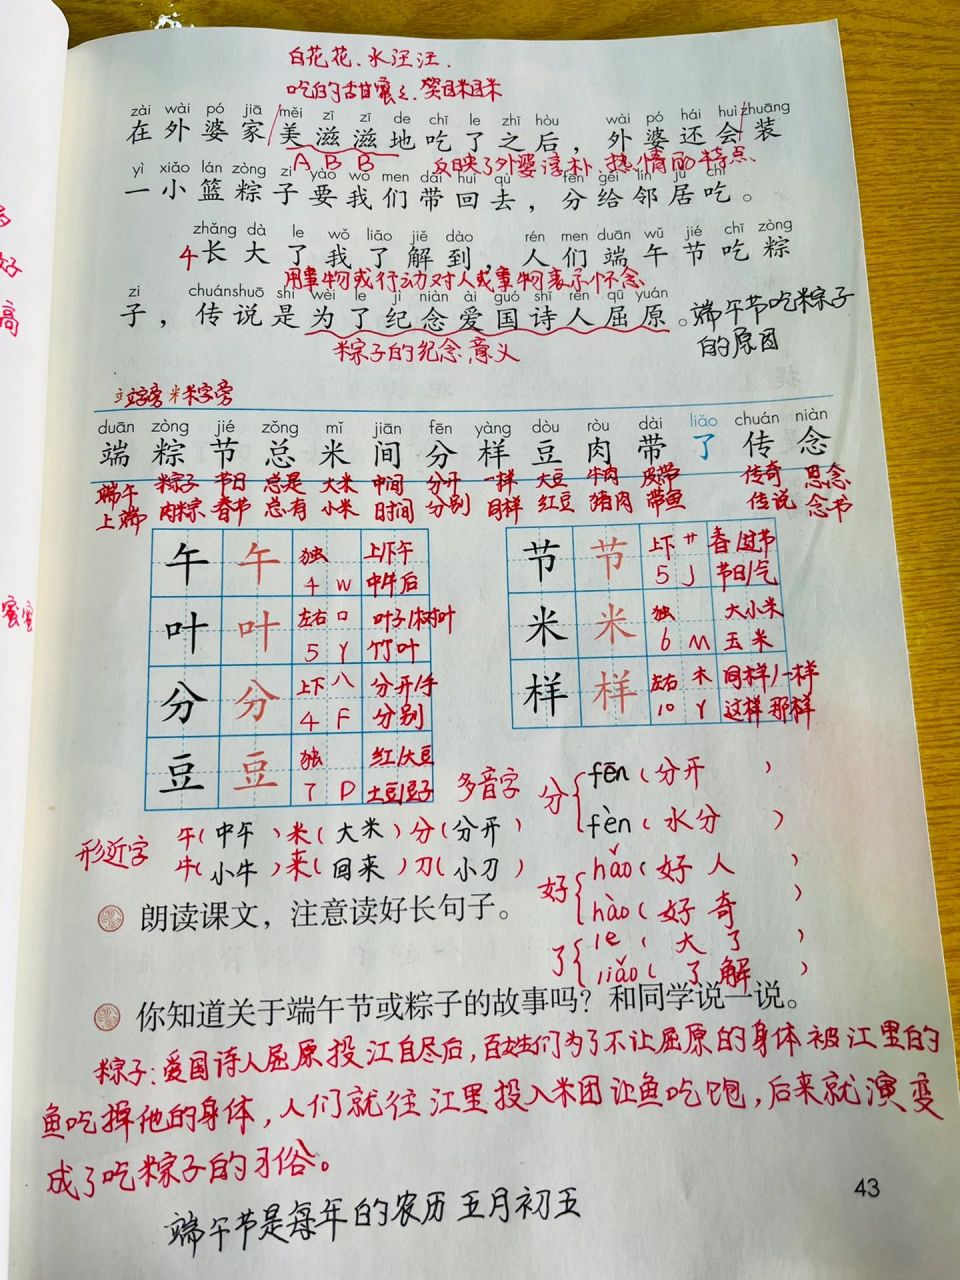 白花花、水汪汪.
吃的甜蜜蜜、笑眯眯
zài wài pó jiā měi zī zī de chī le zhī hòu wài pó hái huì zhuāng
在外婆家美滋滋地吃了之后，外婆还会装
A B B 反映了外婆淳朴、热情的特点
yì xiǎo lán zòng zi yào wǒ men dài huí qù fēn gěi lín jū chī
一小篮粽子要我们带回去，分给邻居吃。
zhǎng dà le wǒ liǎo jiě dào rén men duān wǔ jié chī zòng
4长大了我了解到，人们端午节吃粽
用事物或行动对人或事物表示怀念
zi chuánshuō shì wèi le jì niàn ài guó shī rén qū yuán
子，传说是为了纪念爱国诗人屈原。端午节吃粽子
的原因
粽子的纪念意义
立 立字旁 米 米字旁
duān zòng jié zǒng mǐ jiān fēn yàng dòu ròu dài liǎo chuán niàn
端 粽 节 总 米 间 分 样 豆 肉 带 了 传 念
端午 粽子 节日 总是 大米 中间 分开 一样 大豆 牛肉 皮带 传奇 思念
上端 肉粽 春节 总有 小米 时间 分别 同样 红豆 猪肉 带鱼 传说 念书
午 午 独 上/下午
4 W 中午后
叶 叶 左右 口 叶子/树叶
5 Y 竹叶
分 分 上下 八 分开/手
4 F 分别
豆 豆 独 红/大豆
7 D 土豆豆子
节 节 上下 艹 春/过节
5 J 节日/气
米 米 独 大小米
6 M 玉米
样 样 左右 木 同样/一样
10 Y 这样 那样
多音字 分 fēn（分开）
fèn（水分）
形近字 午（中午）米（大米）分（分开）
牛（小牛）来（回来）刀（小刀）
好 hǎo（好人）
hào（好奇）
朗读课文，注意读好长句子。
了 le（大了）
liǎo（了解）
你知道关于端午节或粽子的故事吗？和同学说一说。
粽子：爱国诗人屈原投江自尽后，百姓们为了不让屈原的身体被江里的
鱼吃掉他的身体，人们就往江里投入米团让鱼吃饱，后来就演变
成了吃粽子的习俗。
43
端午节是每年的农历五月初五